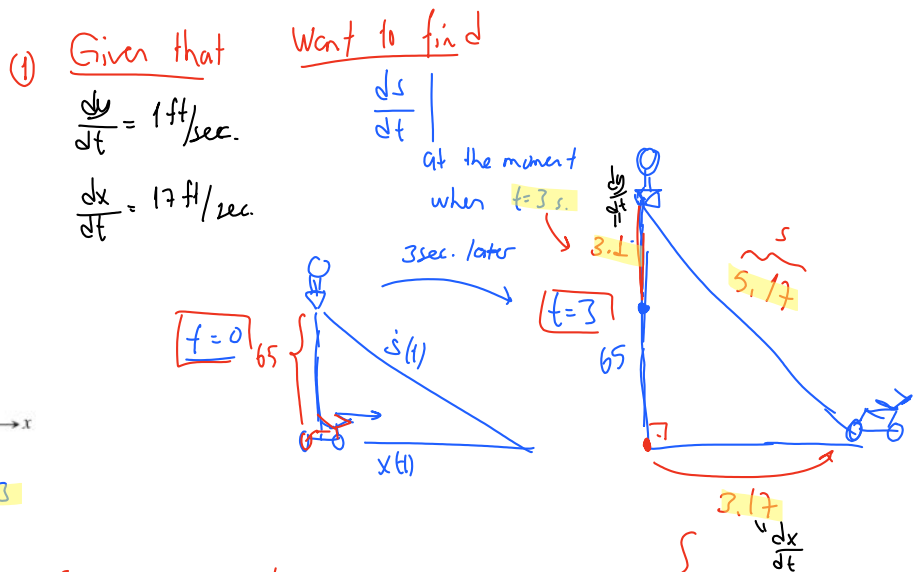 ① Given that
Want to find
dy/dt = 1 ft/sec.
dx/dt = 17 ft/sec.
ds/dt |
at the moment
when t=3 s.
3 sec. later
t=0
65
s(t)
x(t)
t=3
dy/dt =
3.1
65
s
5.17
3.17
dx/dt
→ x
3